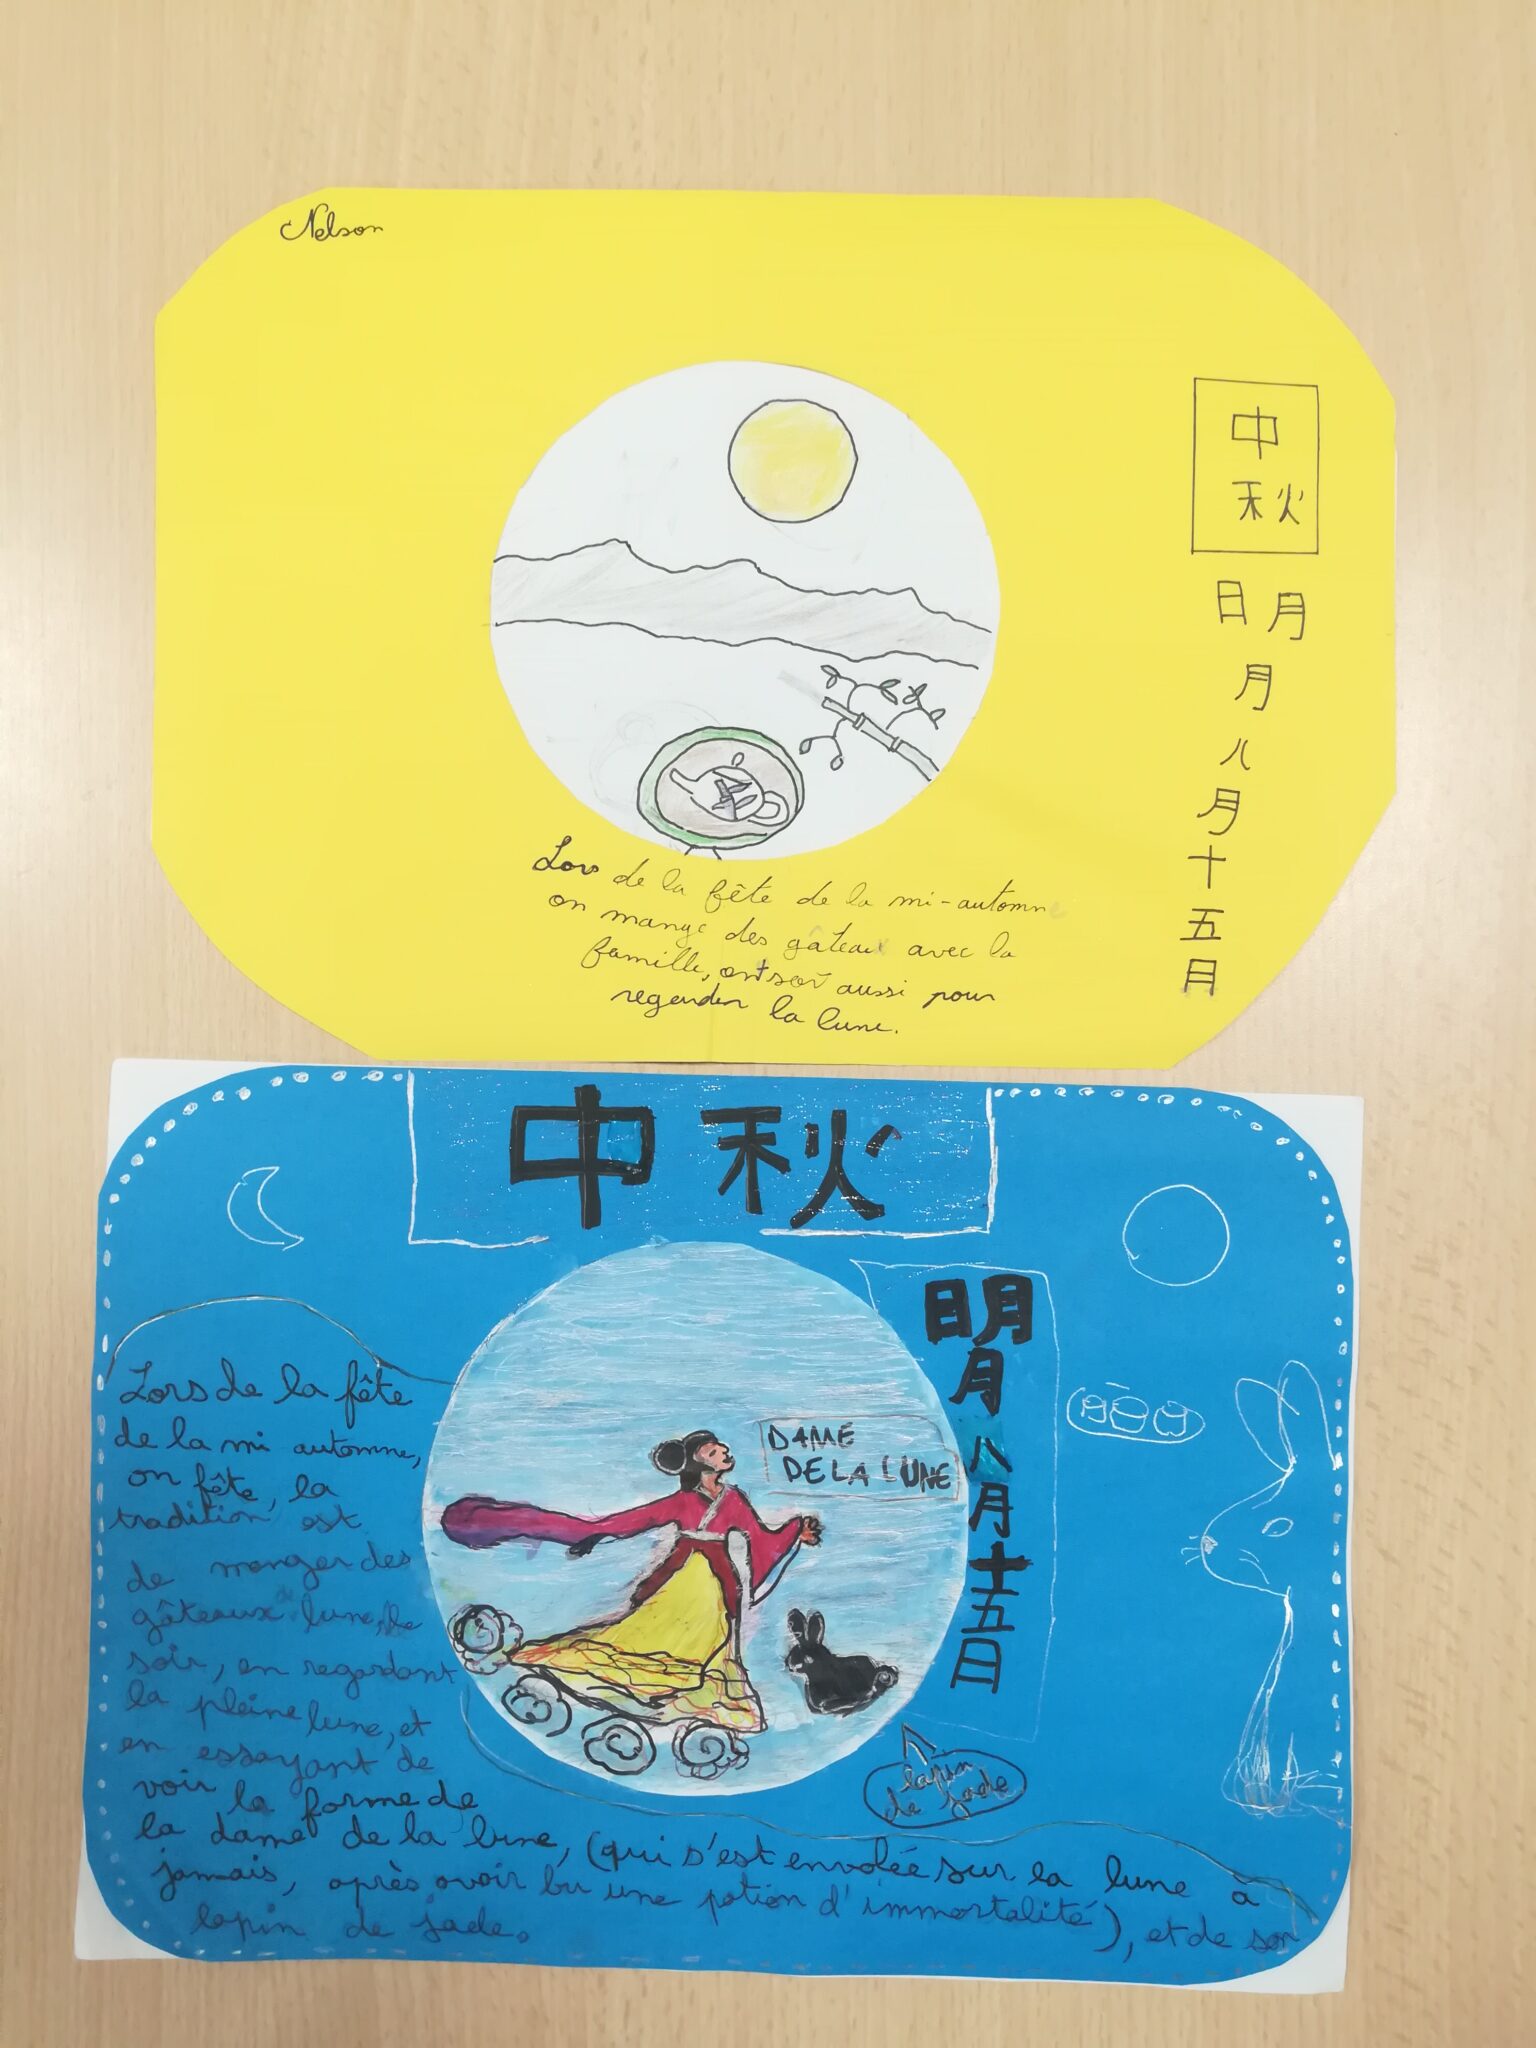 Nelson
中秋
明月八月十五月
Lors de la fête de la mi-automne
on mange des gâteaux avec la
famille, aussi pour
la lune.
中秋
明月八月十五日
DAME
DE LA LUNE
Lors de la fête
de la mi automne,
on fête, la
tradition est
de manger des
gâteaux lune, le
soir, en regardant
la pleine lune, et
en essayant de
voir la forme de
la dame de la lune, (qui s'est envolée sur la lune à
jamais, après avoir bu une potion d'immortalité), et de son
lapin de jade.
lapin
de jade